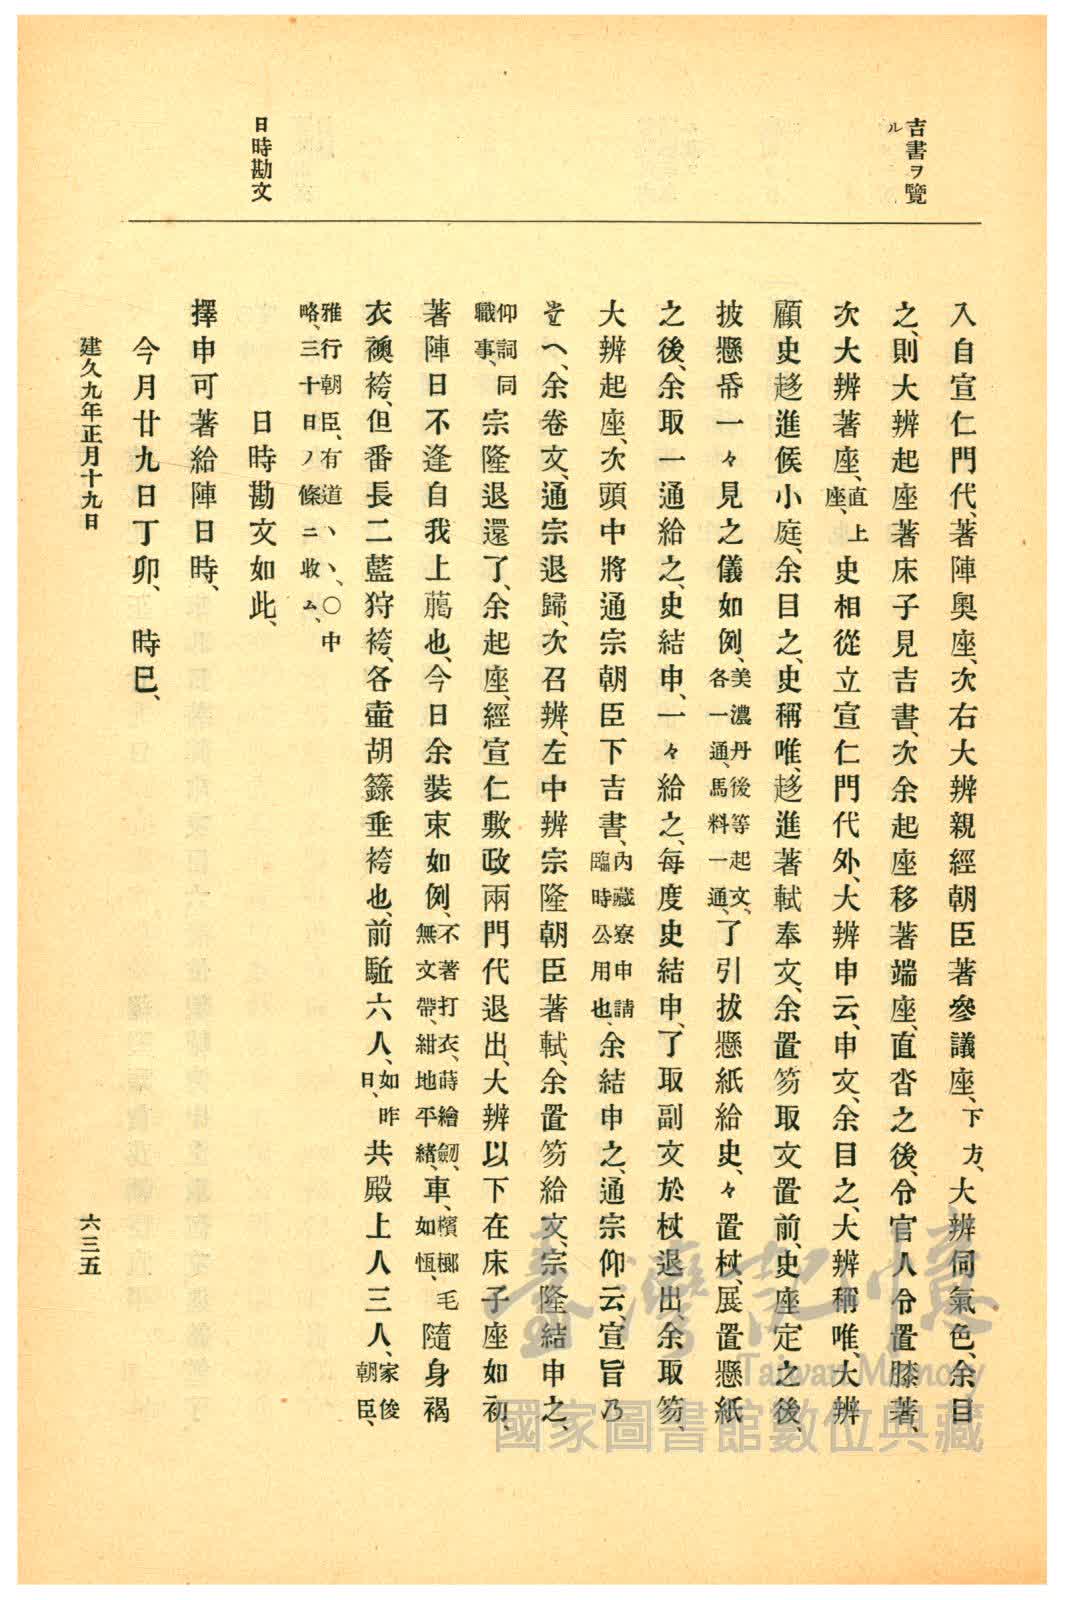 吉書ヲ覽
ル
日時勘文
入自宣仁門代、著陣奧座、次右大辨親經朝臣著參議座、下方、大辨伺氣色、余目
之、則大辨起座著床子見吉書、次余起座移著端座、直沓之後、令官人令置膝著、
次大辨著座、直上座、史相從立宣仁門代外、大辨申云、申文、余目之、大辨稱唯、大辨
顧、史趍進候小庭、余目之、史稱唯、趍進著軾奉文、余置笏取文置前、史座定之後、
披懸帋一々見之儀如例、美濃丹後等起文、各一通、馬料一通、了引拔懸紙給史、々置杖、展置懸紙
之後、余取一通給之、史結申、一々給之、每度史結申、了取副文於杖退出余取笏、
大辨起座、次頭中將通宗朝臣下吉書、內藏寮申請臨時公用也、余結申之、通宗仰云、宣旨乃
堂へ、余卷文、通宗退歸、次召辨、左中辨宗隆朝臣著軾、余置笏給文、宗隆結申之、
仰詞同職事、宗隆退還了、余起座、經宣仁敷政兩門代退出、大辨以下在床子座如初、
著陣日不逢自我上﨟也、今日余裝束如例、不著打衣、蒔繪劒、無文帶、紺地平緒、車、檳榔毛如恆、隨身褐
衣襖袴、但番長二藍狩袴、各壷胡籙垂袴也、前駈六人、如昨日、共殿上人三人、家俊朝臣、
雅行朝臣、有道ヽヽ、〇中
略、三十日ノ條ニ收ム、
日時勘文如此、
擇申可著給陣日時、
今月廿九日丁卯、時巳、
建久九年正月十九日
六三五
臺灣記憶
Taiwan Memory
國家圖書館數位典藏